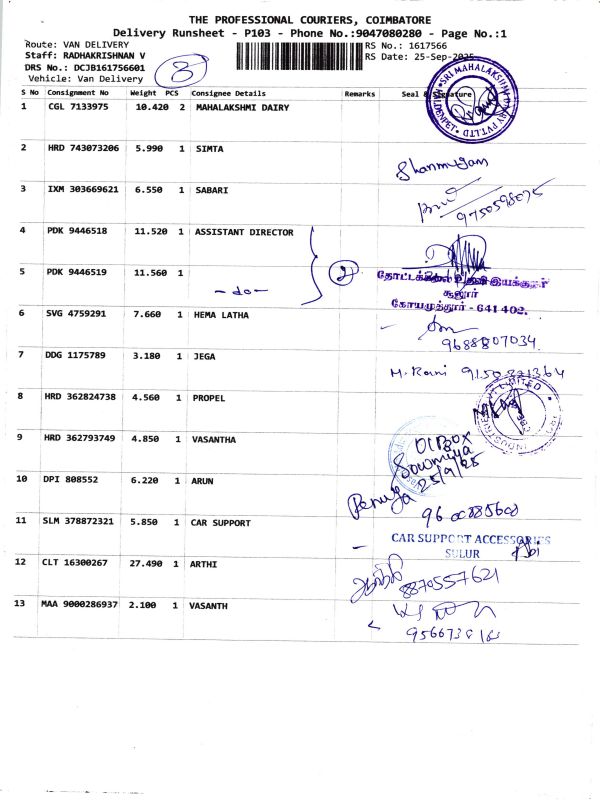 THE PROFESSIONAL COURIERS, COIMBATORE
Delivery Runsheet - P103 - Phone No.:9047080280 - Page No.:1
Route: VAN DELIVERY
RS No.: 1617566
Staff: RADHAKRISHNAN V
RS Date: 25-Sep-2025
DRS No.: DCJB161756601
Vehicle: Van Delivery
S No Consignment No Weight PCS Consignee Details Remarks Seal & Signature
1 CGL 7133975 10.420 2 MAHALAKSHMI DAIRY
SRI MAHALAKSHMI DAIRY PVT LTD
2 HRD 743073206 5.990 1 SIMTA
Shanmugam
3 IXM 303669621 6.550 1 SABARI
9750598075
4 PDK 9446518 11.520 1 ASSISTANT DIRECTOR
2
5 PDK 9446519 11.560 1
-do-
கோயமுத்தூர் - 641 402.
சூலூர்
6 SVG 4759291 7.660 1 HEMA LATHA
9688807034
7 DDG 1175789 3.180 1 JEGA
M. Rani
8 HRD 362824738 4.560 1 PROPEL
9 HRD 362793749 4.850 1 VASANTHA
Sowmiya
25/9/25
10 DPI 808552 6.220 1 ARUN
11 SLM 378872321 5.850 1 CAR SUPPORT
CAR SUPPORT ACCESSORIES
SULUR
12 CLT 16300267 27.490 1 ARTHI
8870557621
13 MAA 9000286937 2.100 1 VASANTH